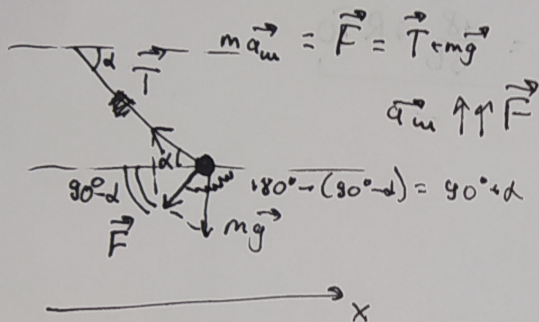 α
T⃗
ma⃗ₘ = F⃗ = T⃗ + mg⃗
a⃗ₘ ↑↑ F⃗
α
90°-α
180° - (90°-α) = 90°+α
F⃗
mg⃗
x